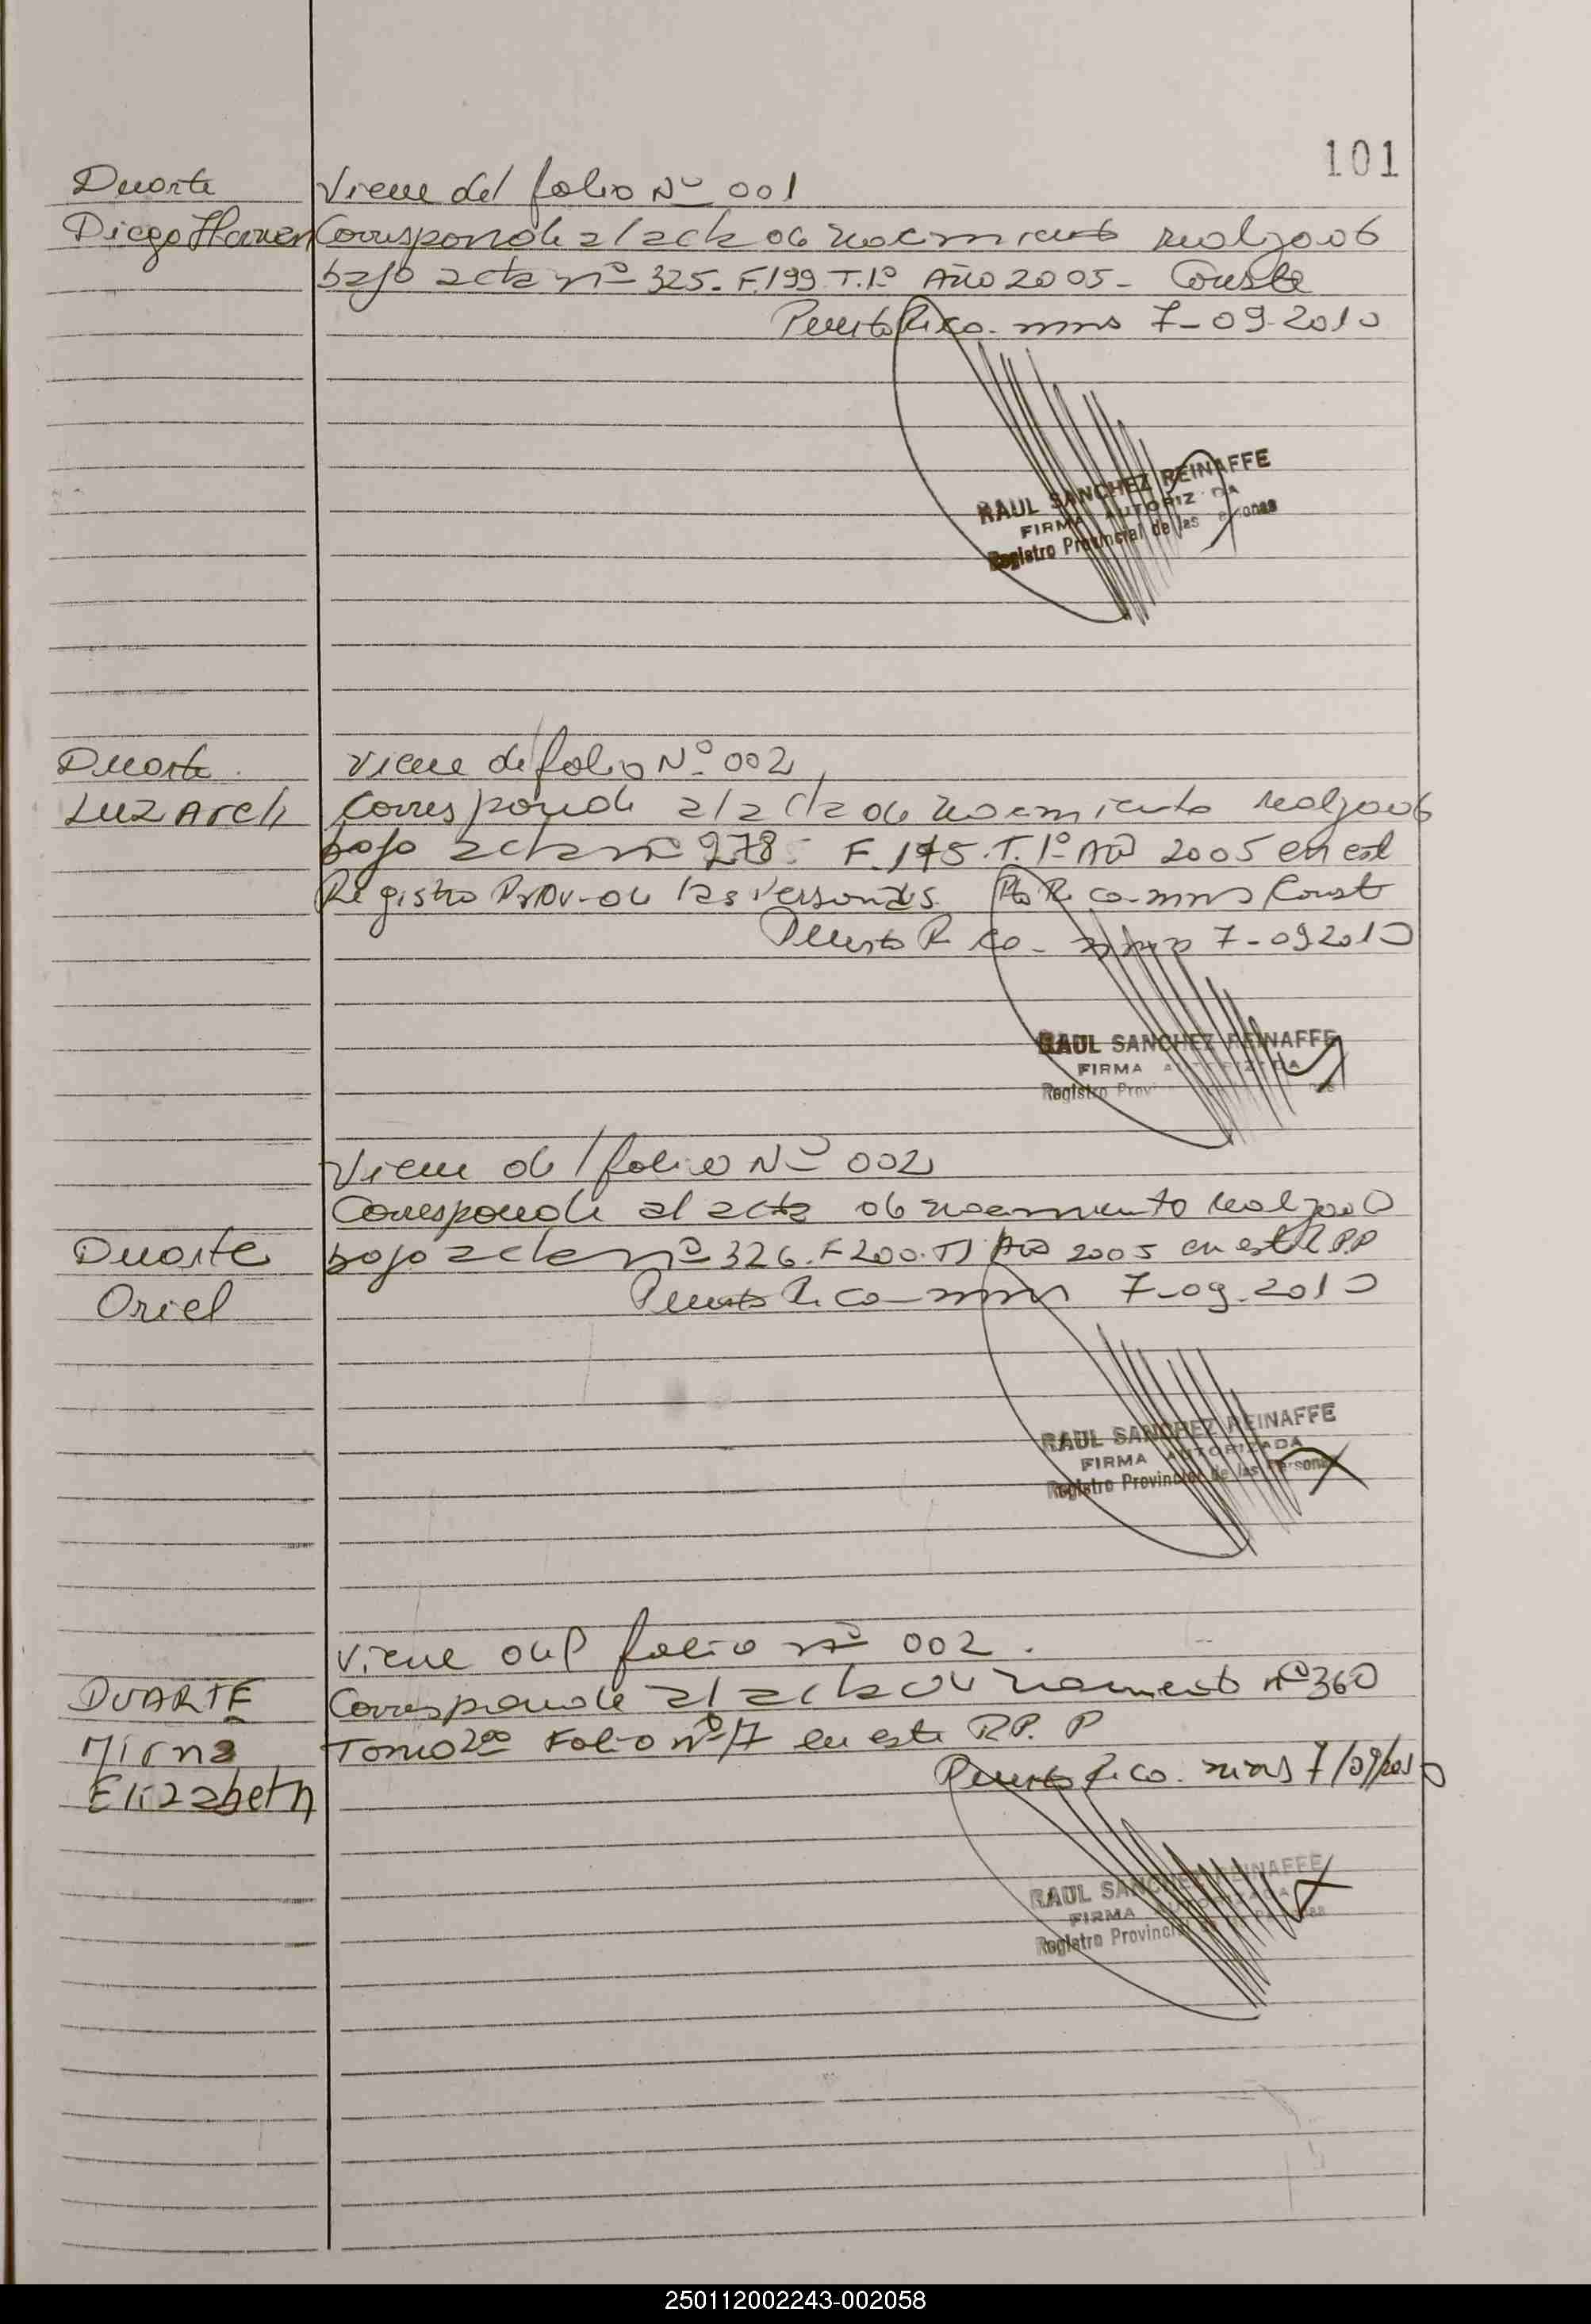 101
Duarte
Viene del folio Nº 001
Diego
Corresponde al acta de nacimiento realizado
bajo acta nº 325. F.199. T.1º Año 2005 - Conste
Puerto Rico - mns 7-09-2010
RAUL SANCHEZ REINAFFE
FIRMA AUTORIZADA
Registro Provincial de las Personas
Duarte
Viene del folio Nº 002
Luz
Corresponde al acta de nacimiento realizado
bajo acta nº 278 F. 175. T. 1º Año 2005 en el
Registro Prov. de las Personas. Pto Rico - mns Const
Puerto Rico - mns 7-09 2010
RAUL SANCHEZ REINAFFE
FIRMA AUTORIZADA
Registro Prov
Viene del folio Nº 002
Corresponde al acta de nacimiento realizado
Duarte
bajo acta nº 326. F 200. T1 Año 2005 en est R.P.P
Oriel
Puerto Rico - mns 7-09-2010
RAUL SANCHEZ REINAFFE
FIRMA AUTORIZADA
Registro Provincial de las Personas
Viene del folio nº 002.
DUARTE
Corresponde al acta de nacimiento nº 360
Mirna
Tomo 2do Folio nº 17 en este R.P. P
Elizabeth
Puerto Rico - mns 7/09/2010
RAUL SANCHEZ REINAFFE
FIRMA AUTORIZADA
Registro Provincial de las Personas
250112002243-002058